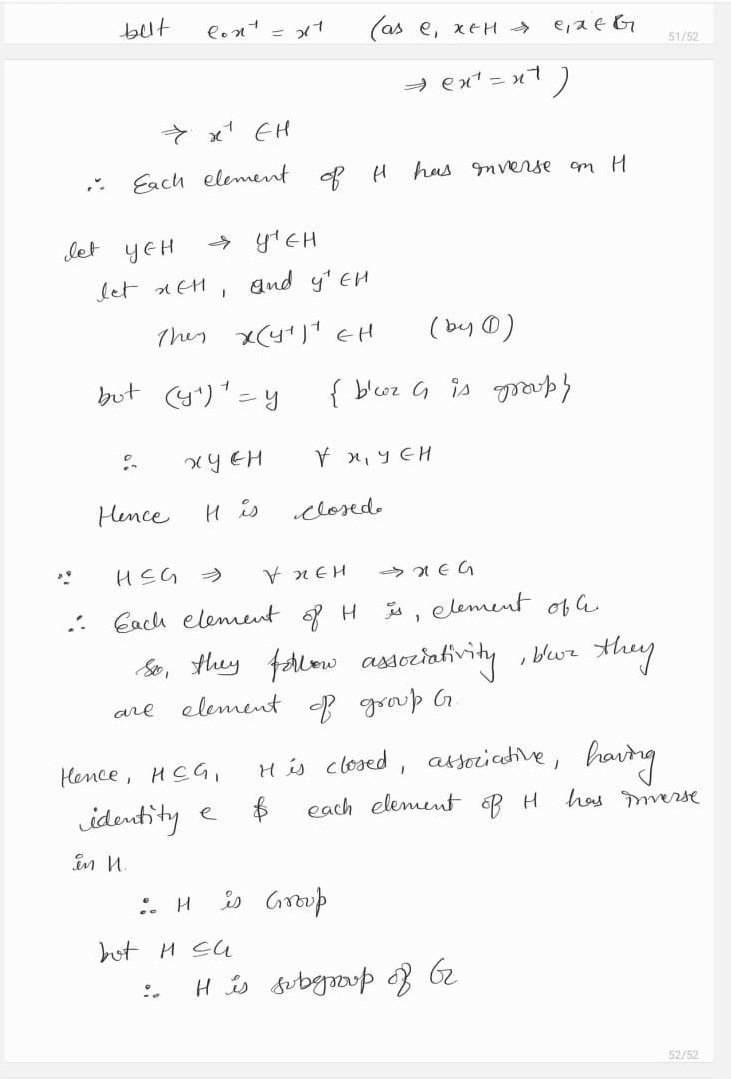 but e.x⁻¹ = x⁻¹ (as e, x∈H ⇒ e,x∈G
51/52
⇒ ex⁻¹ = x⁻¹ )
⇒ x⁻¹ ∈H
∴ Each element of H has inverse in H
let y∈H ⇒ y⁻¹∈H
let x∈H, and y⁻¹∈H
Then x(y⁻¹)⁻¹ ∈H (by ①)
but (y⁻¹)⁻¹ = y { b'coz G is group}
∴ xy∈H ∀ x, y ∈H
Hence H is closed.
∵ H⊆G ⇒ ∀ x∈H → x∈G
∴ Each element of H is, element of G.
So, they follow associativity, b'coz they
are element of group G.
Hence, H⊆G, H is closed, associative, having
identity e & each element of H has inverse
in H.
∴ H is Group
but H ⊆G
∴ H is subgroup of G
52/52